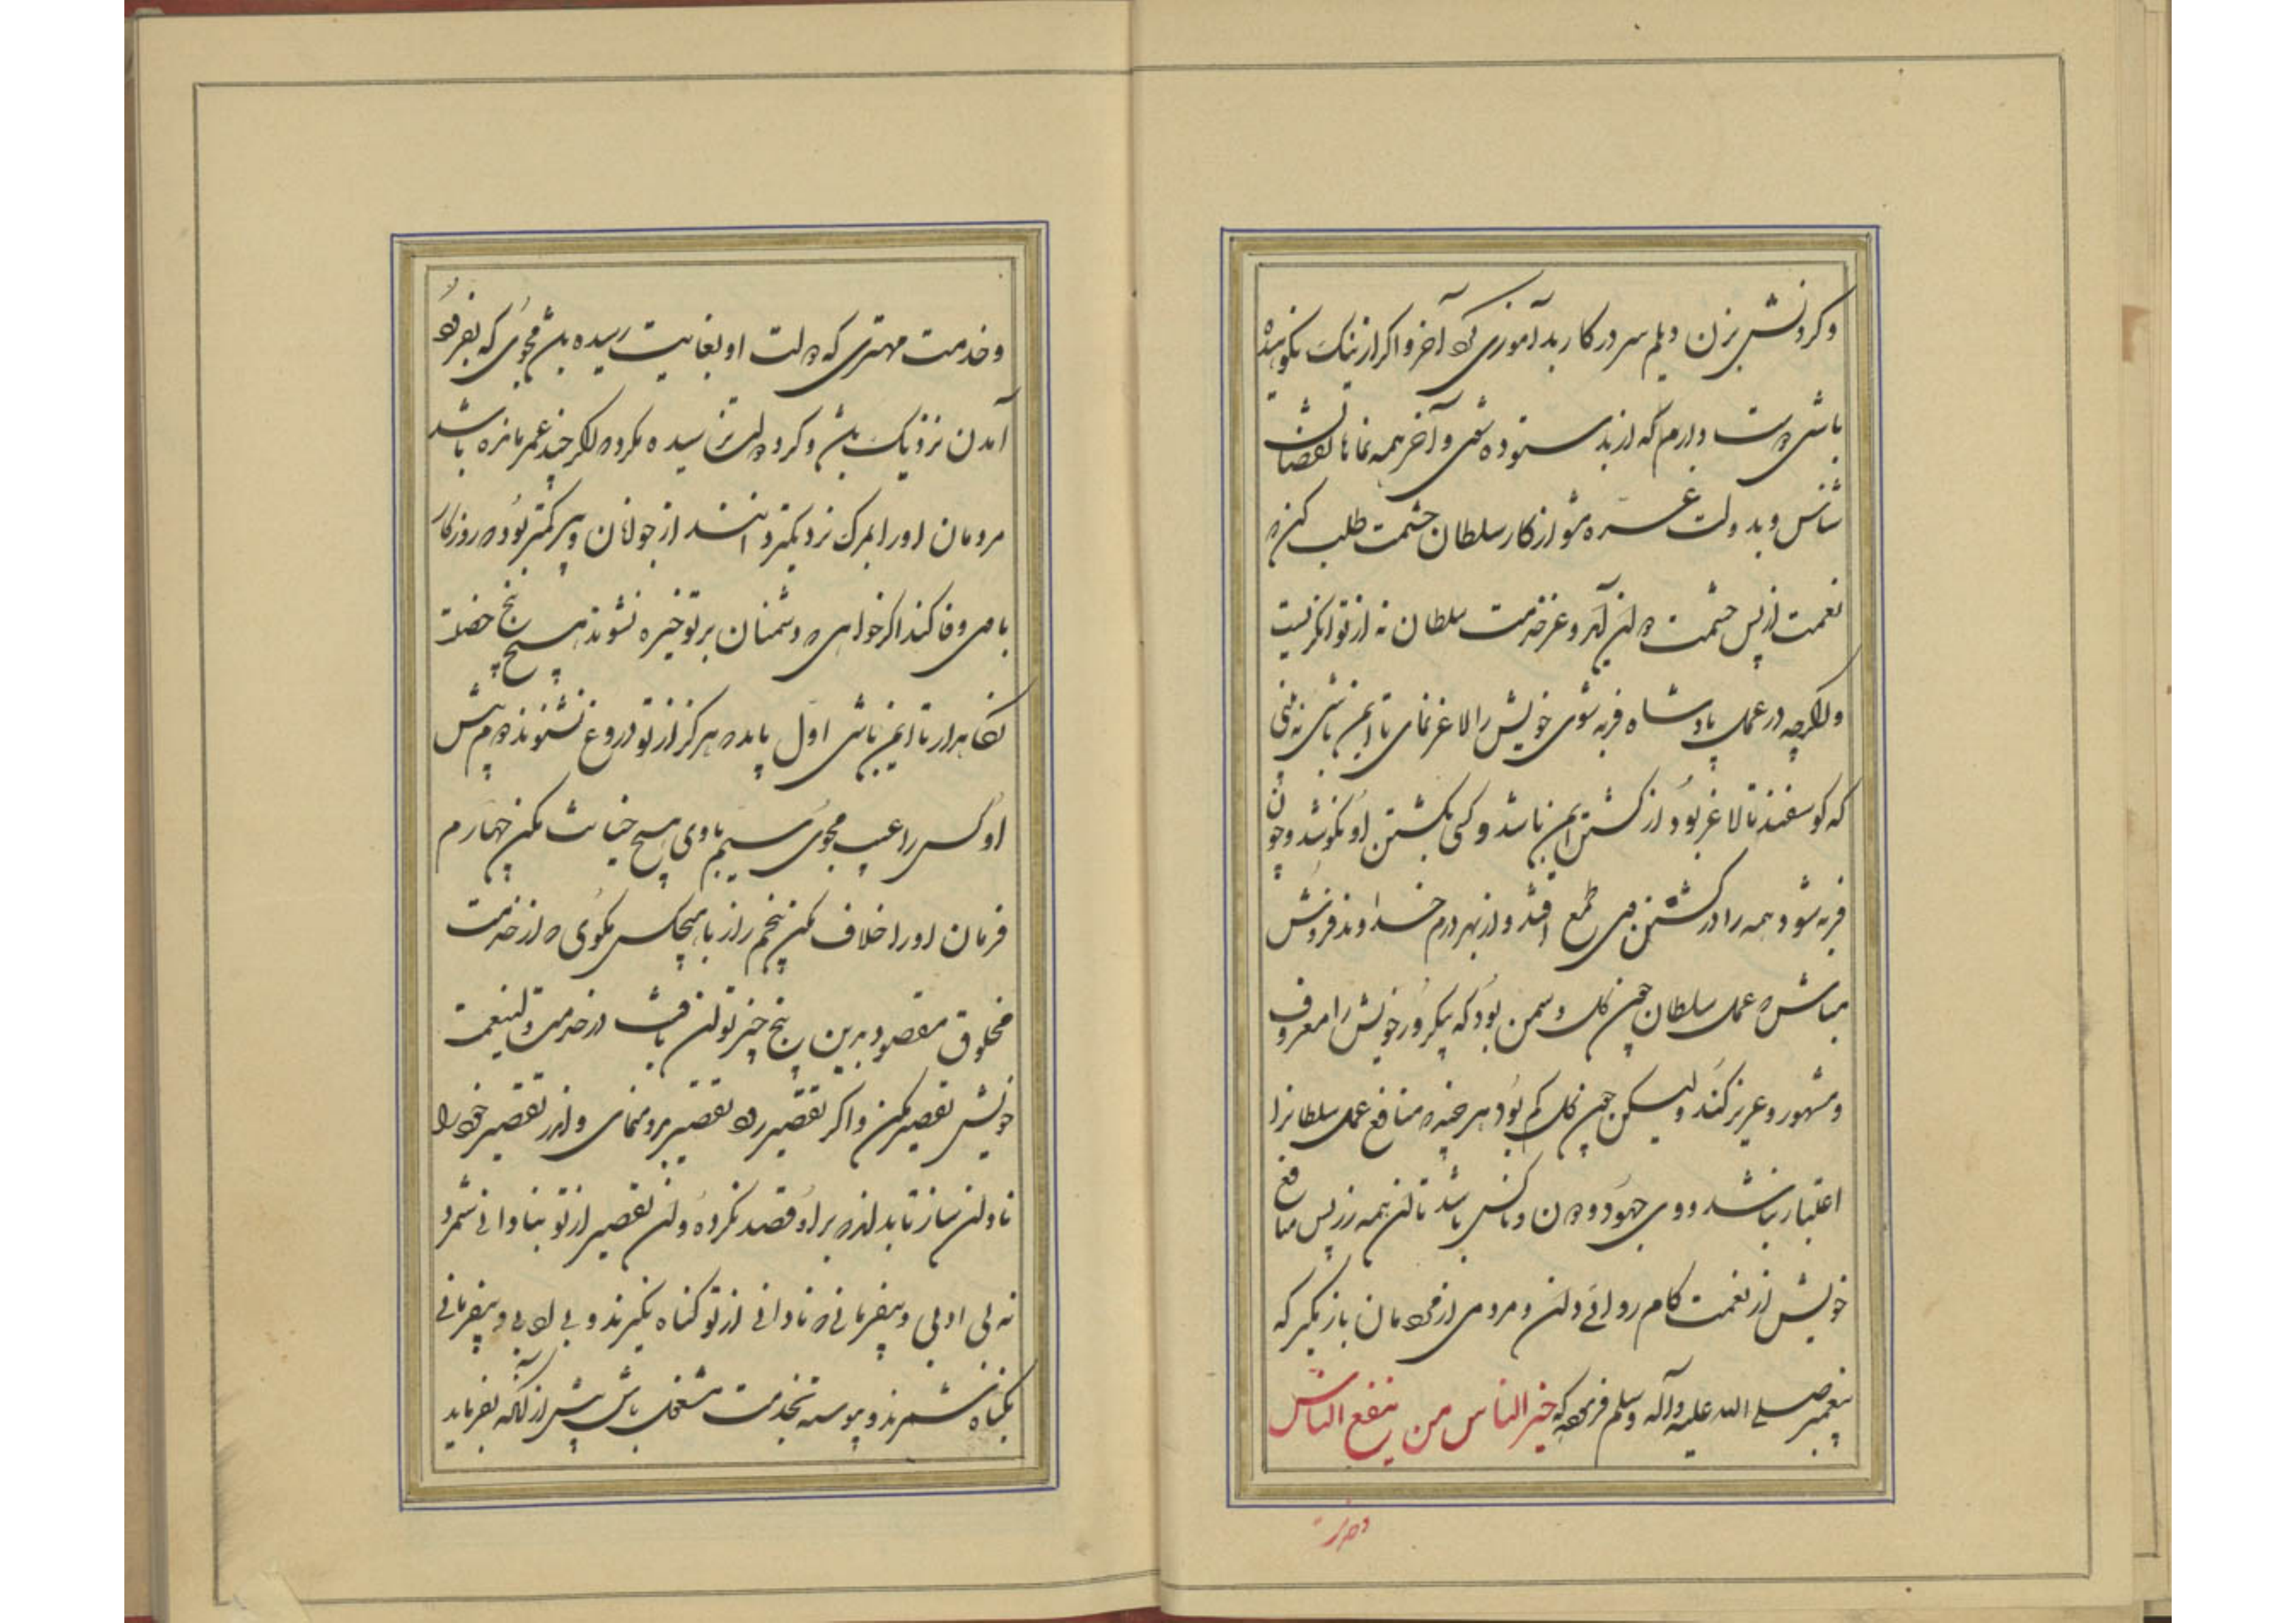 و کردنش بزن و یلم سر در کار بد آموزی آخر و اگر از نیک نکوهیده
باشی دوست دارم که از بد ستوده شوی و آخر همه نمامها نقصان
شناس و بدولت غره مشو از کار سلطان حشمت طلب کن که
نعمت از پس حشمت دوان آید و عز خدمت سلطان نه از توانگریست
و اگرچه در عمل پادشاه فربه شوی خویش را لاغر نمای تا ایمن باشی نه بینی
که گوسفند تا لاغر بود از کشتن ایمن باشد و کسی بکشتن او نکوشد و چون
فربه شود همه را در کشتن وی طمع افتد و از بهر درم خداوند فروش
مباش که عمل سلطان چون گل و سمن بود که یکروز خویش را معروف
و مشهور و عزیز کند ولیکن چون گل کم بود هر چند که منافع عمل سلطانرا
اعتبار نباشد و وی چهود و دون و ناکس باشد تا آن همه زر پس منافع
خویش از نعمت کام روائی دان و مردمی از مردمان باز مگیر که
پیغمبر صلی الله علیه و آله و سلم فرموده که خیر الناس من ینفع الناس
و خدمت
و خدمت مهتری که دولت او بغایت رسیده باشد مجوی که بفرود
آمدن نزدیک باشد و گرد دولت ترسیده مگرد که اگر چند عمر مانده باشد
مردمان او را بمرگ نزدیکتر دانند از جوانان و پیر کمتر بود که روزگار
با وی وفا کند اگر خواهی که دشمنان بر تو خیره نشوند هیچ پنج خصلت
نگاهدار تا ایمن باشی اول باید که هرگز از تو دروغ نشنوند دوم پیش
او کس را عیب مجوی سیم با وی هیچ خیانت مکن چهارم
فرمان او را خلاف مکن پنجم راز با هیچکس مگوی که از خدمت
مخلوق مقصود بدین پنج چیز توان یافت در خدمت ولینعمت
خویش تقصیر مکن و اگر تقصیر رود تقصیر بدو منمای و اندر تقصیر خود را
نادان ساز تا بداند که بر او قصد نکرده و آن تقصیر از تو بنادانی شمرد
نه بی ادبی و بیفرمانی که نادانی از تو گناه نگیرند و بی ادبی و بیفرمانی
بگناه شمرند و پیوسته بخدمت مشغول باش پیش از آنکه بفرماید